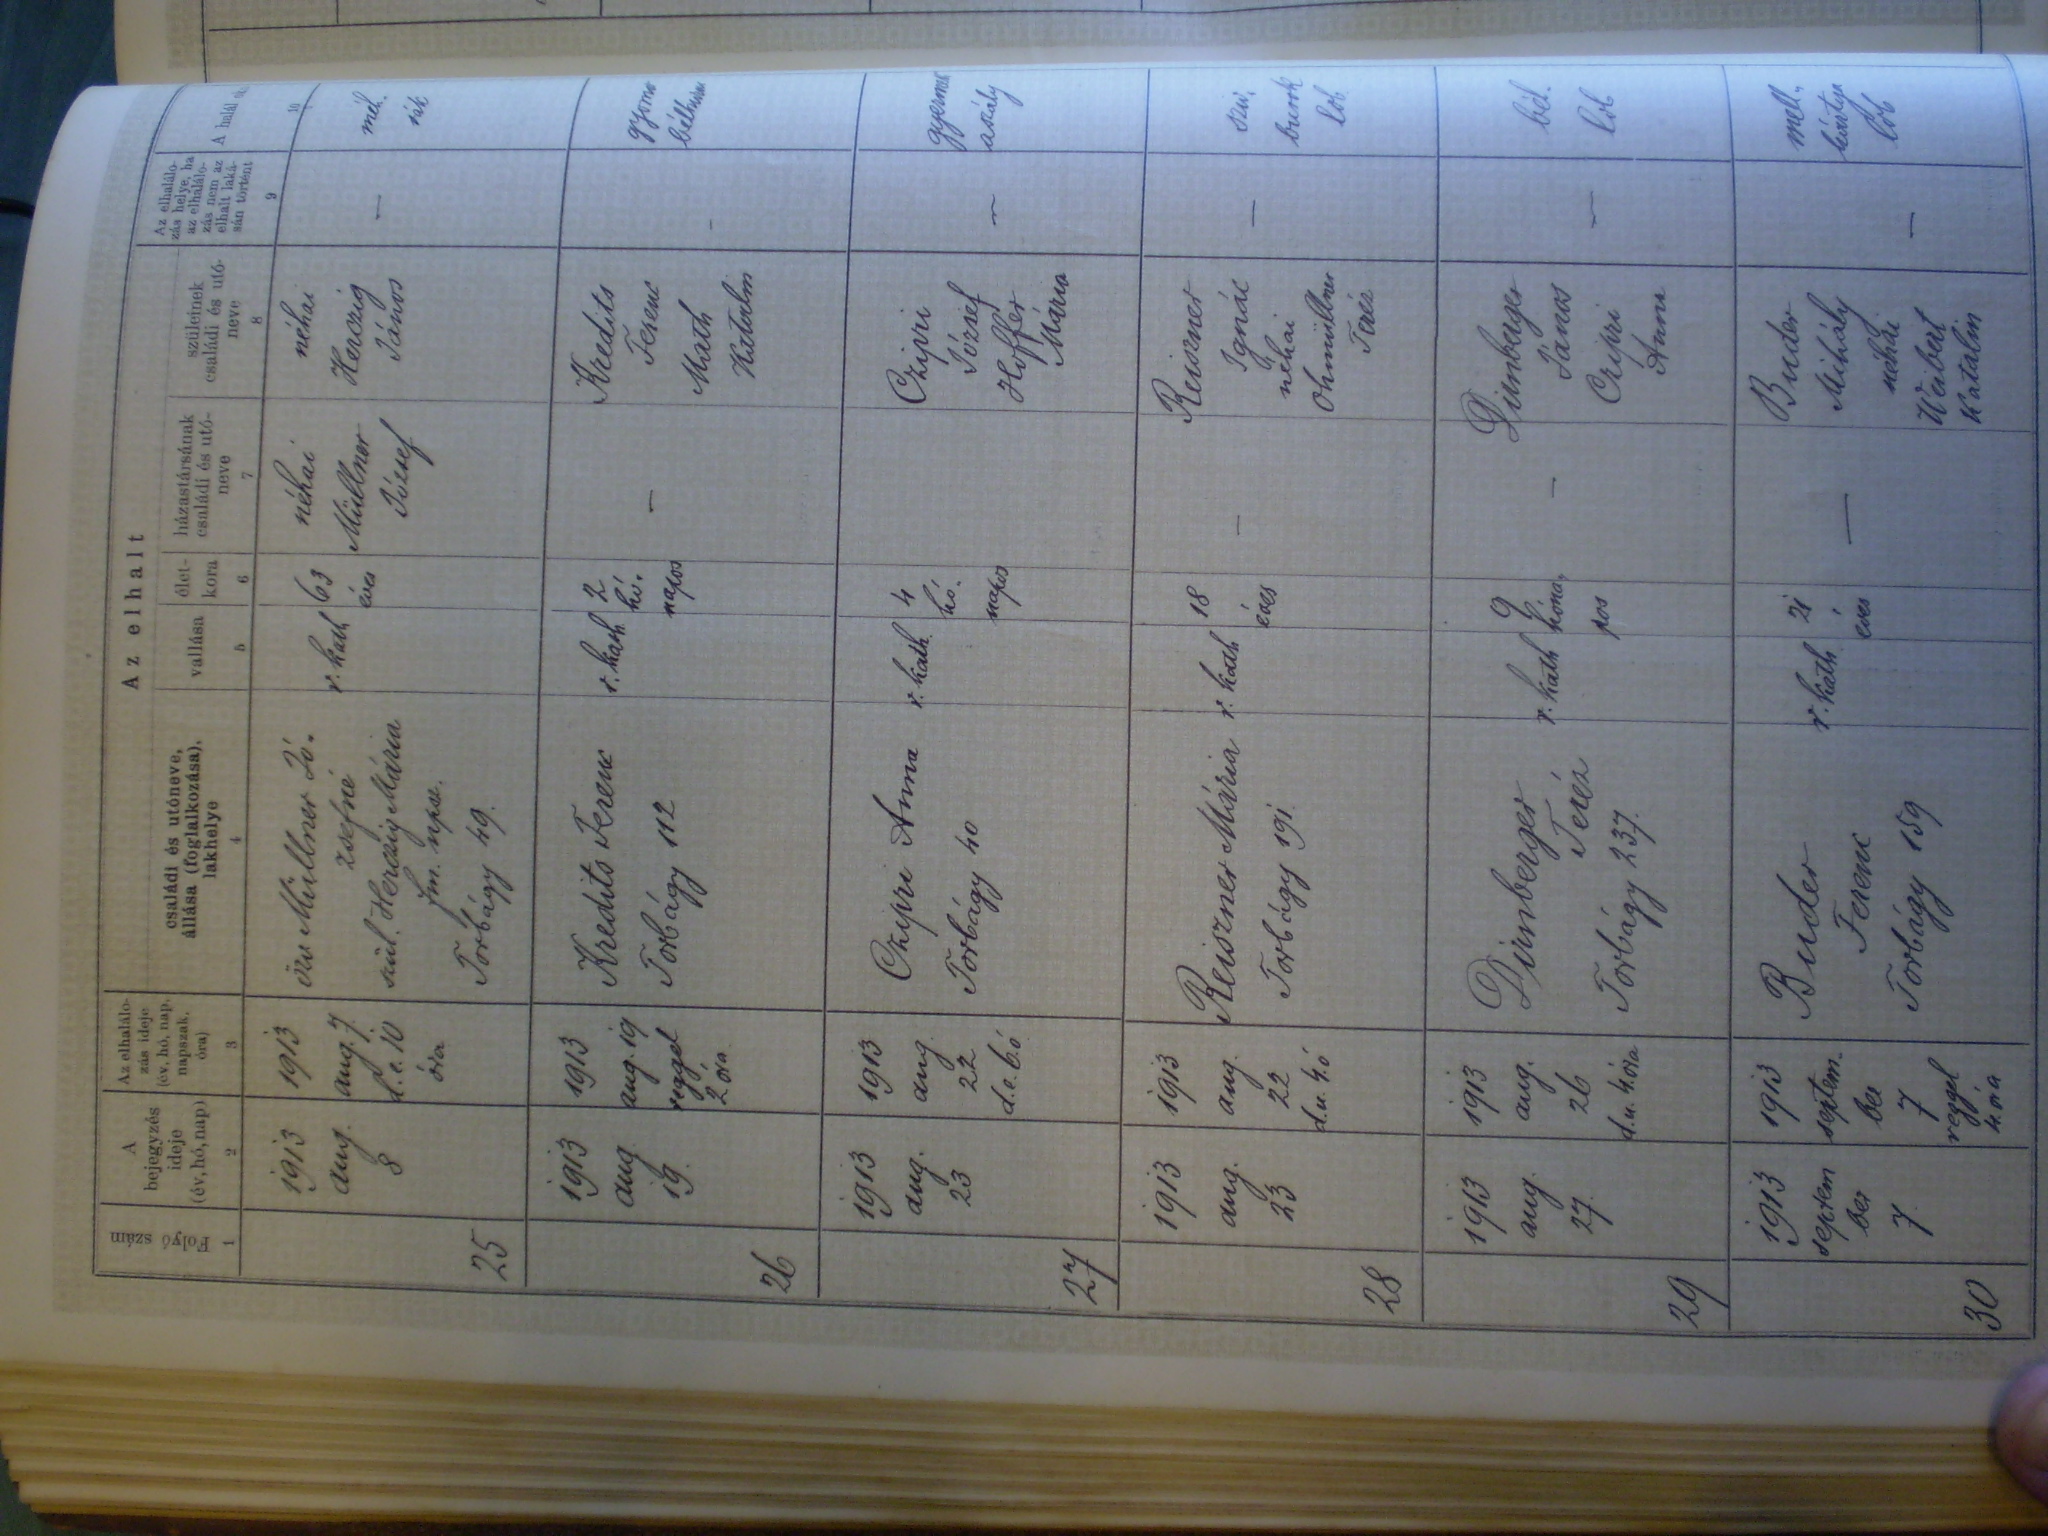 Az elhalt
Folyó szám
A bejegyzés ideje (év, hó, nap)
Az elhalálozás ideje (év, hó, nap, napszak, óra)
családi és utóneve, állása (foglalkozása), lakhelye
vallása
életkora
házastársának családi és utóneve
szüleinek családi és utóneve
Az elhalálozás helye, ha az elhalálozás nem az elhalt lakásán történt
A halál
1 2 3 4 5 6 7 8 9 10
25
1913
aug.
8
1913
aug. 7.
d. e. 10
óra
özv Müllner Jó-
zsefné
szül. Herczig Mária
Torbágy 49.
r. kath
63
éves
néhai
Müllner
József
néhai
Herczig
János
—
méh.
rák
26
1913
aug
19.
1913
aug. 19
reggel
2 óra
Kredits Ferenc
Torbágy 112
r. kath.
2
hó.
napos
—
Kredits
Ferenc
Math
Katalin
-
27
1913
aug.
23
1913
aug.
22
d. e. 6. ó
Czipri Anna
Torbágy 40
r. kath.
4
hó.
napos
Czipri
József
Hoffer
Mária
~
gyerme
aszály
28
1913
aug.
23
1913
aug.
22
d. u. 4. ó
Reiszner Mária
Torbágy 191.
r. kath
18
éves
—
Reiszner
Ignác
néhai
Ohmüllner
Teréz
—
szív.
burok
lob.
29
1913
aug.
27.
1913
aug.
26
d. u. 4. óra
Dirnberger
Teréz
Torbágy 237.
r. kath
9
hóna,
pos
—
Dirnberger
János
Czipri
Anna
—
bél.
lob
30
1913
septem
ber
7.
1913
septem.
ber
7
reggel
4. óra
Buder
Ferenc
Torbágy 159
r. kath.
21
éves
—
Buder
Mihály
néhai
Weibel
Katalin
—
mell.
hártya
lob